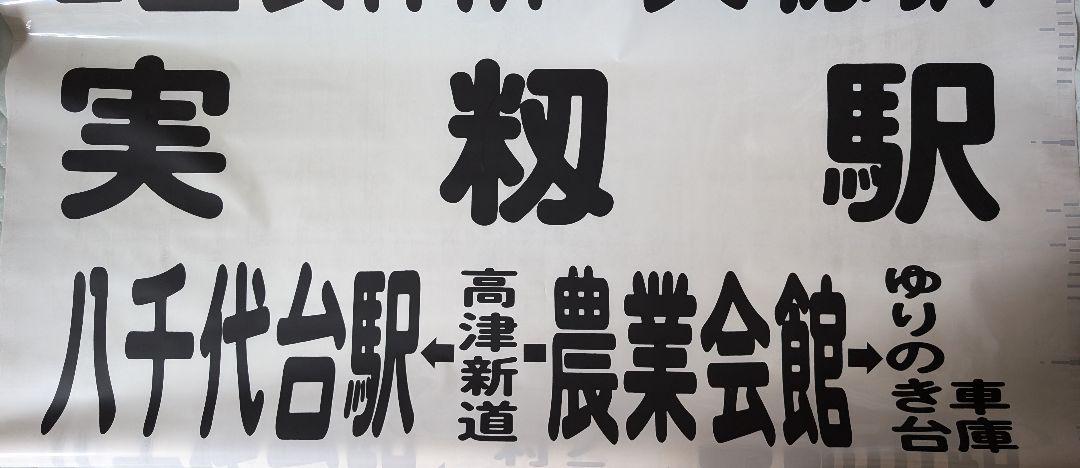 実籾駅
八千代台駅←高津新道━農業会館→ゆりのき台車庫